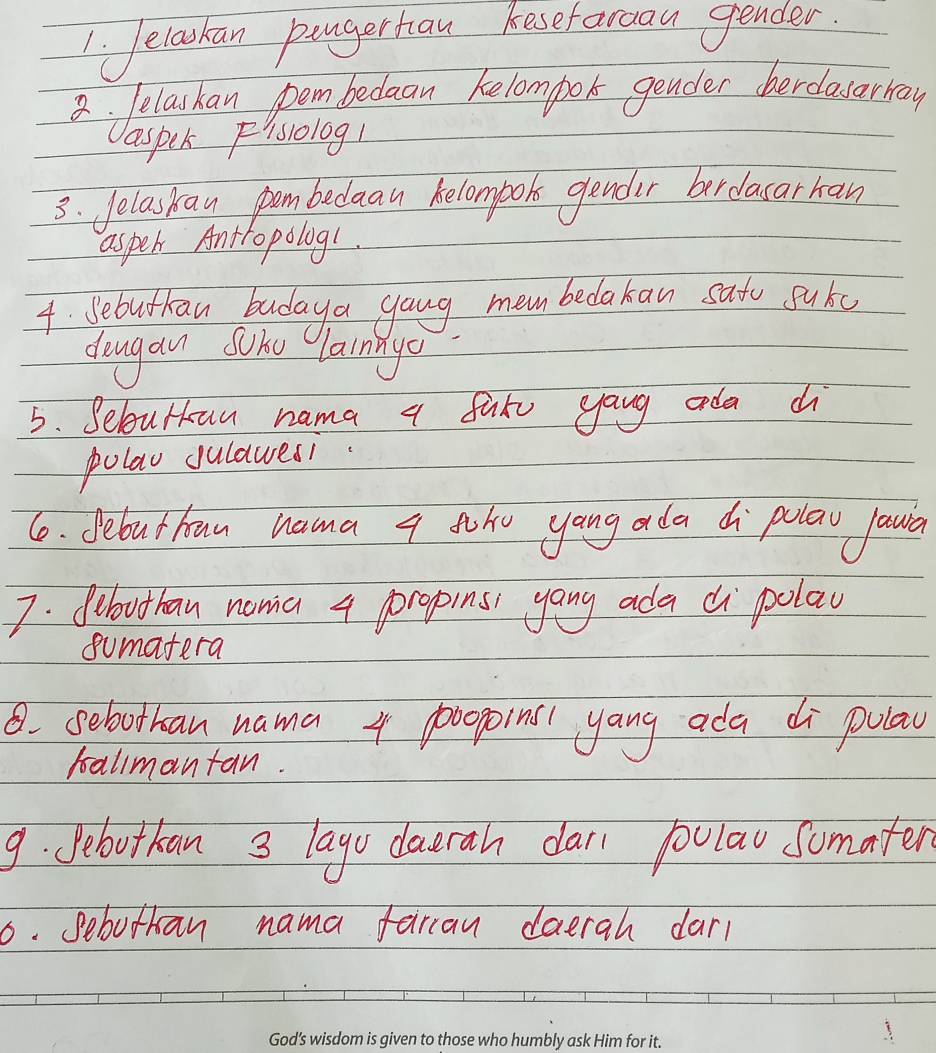 1. Jelaskan pengertian kesetaraan gender.
2. Jelaskan pembedaan kelompok gender berdasarkan
aspek Fisiologi
3. Jelaskan pembedaan kelompok gender berdasarkan
aspek Antropologi.
4. Sebutkan budaya yang membedakan satu suku
dengan suku lainnya.
5. Sebutkan nama 4 suku yang ada di
pulau sulawesi.
6. Sebutkan nama 4 suku yang ada di pulau jawa
7. Sebutkan nama 4 propinsi yang ada di pulau
sumatera
8. sebutkan nama 4 propinsi yang ada di pulau
kalimantan.
9. Sebutkan 3 lagu daerah dari pulau Sumater
0. Sebutkan nama tarian daerah dari
God's wisdom is given to those who humbly ask Him for it.